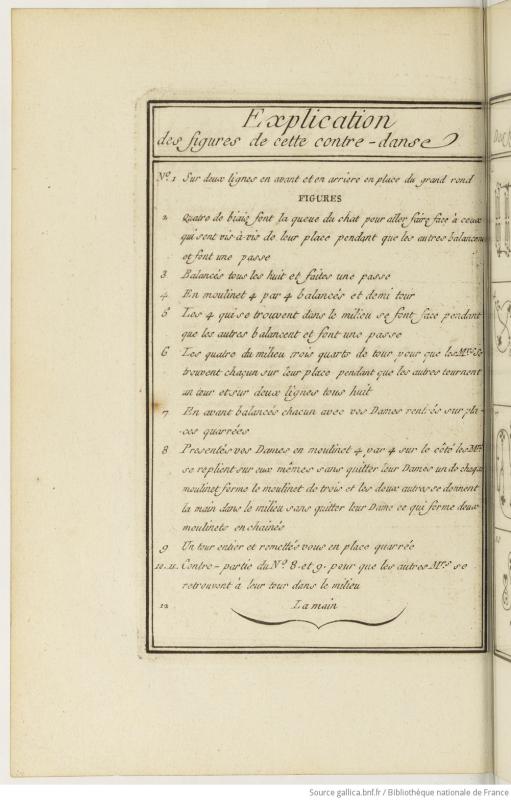 Explication
des figures de cette contre-danse
Nº. 1 Sur deux lignes en avant et en arriere en place du grand rond
FIGURES
2 Quatre de biais font la queue du chat pour aller faire face à ceux
qui sont vis-à-vis de leur place pendant que les autres balancent
et font une passe
3 Balancés tous les huit et faites une passe
4 En moulinet 4 par 4 balancés et demi tour
5 Les 4 qui se trouvent dans le milieu se font face pendant
que les autres balancent et font une passe
6 Les quatre du milieu trois quarts de tour pour que les Mrs. se
trouvent chacun sur leur place pendant que les autres tournent
un tour et sur deux lignes tous huit
7 En avant balancés chacun avec vos Dames rentrés sur pla-
ces quarrées
8 Presentés vos Dames en moulinet 4 par 4 sur le côté les Mrs.
se replient sur eux mêmes sans quitter leur Dames un de chaque
moulinet forme le moulinet de trois et les deux autres se donnent
la main dans le milieu sans quitter leur Dame ce qui forme deux
moulinets enchainés
9 Un tour entier et remettés vous en place quarrée
10. 11. Contre-partie du Nº. 8. et 9. pour que les autres Mrs. se
retrouvent à leur tour dans le milieu
12 La main
Source gallica.bnf.fr / Bibliothèque nationale de France